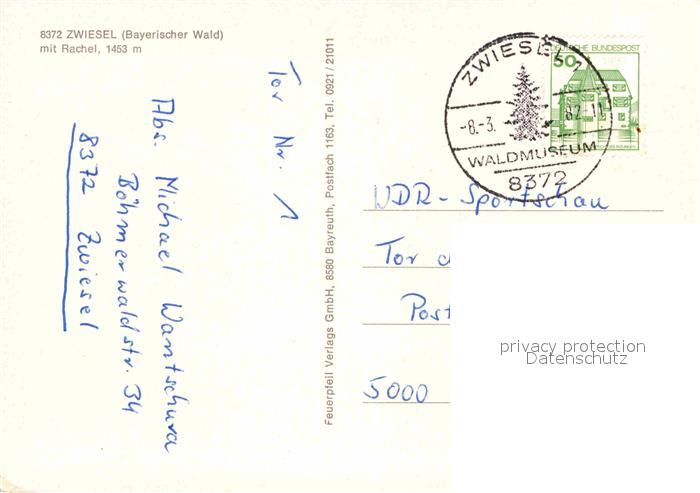 8372 ZWIESEL (Bayerischer Wald)
mit Rachel, 1453 m
Tor Nr. 1
Abs. Michael Wantschura
Böhmerwaldstr. 34
8372 Zwiesel
Feuerpfeil Verlags GmbH, 8580 Bayreuth, Postfach 1163, Tel. 0921/21011
ZWIESEL 1
-8.-3. 82-11
WALDMUSEUM
8372
DEUTSCHE BUNDESPOST
50
WDR-Sportschau
Tor d
Post
5000
privacy protection
Datenschutz